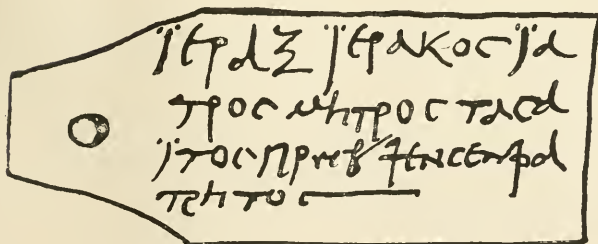 ϊεραξ ϊερακος ϊα
τρος μητρος τασα
ϊτος πρεσβ/ ψενσενφα
τρητος